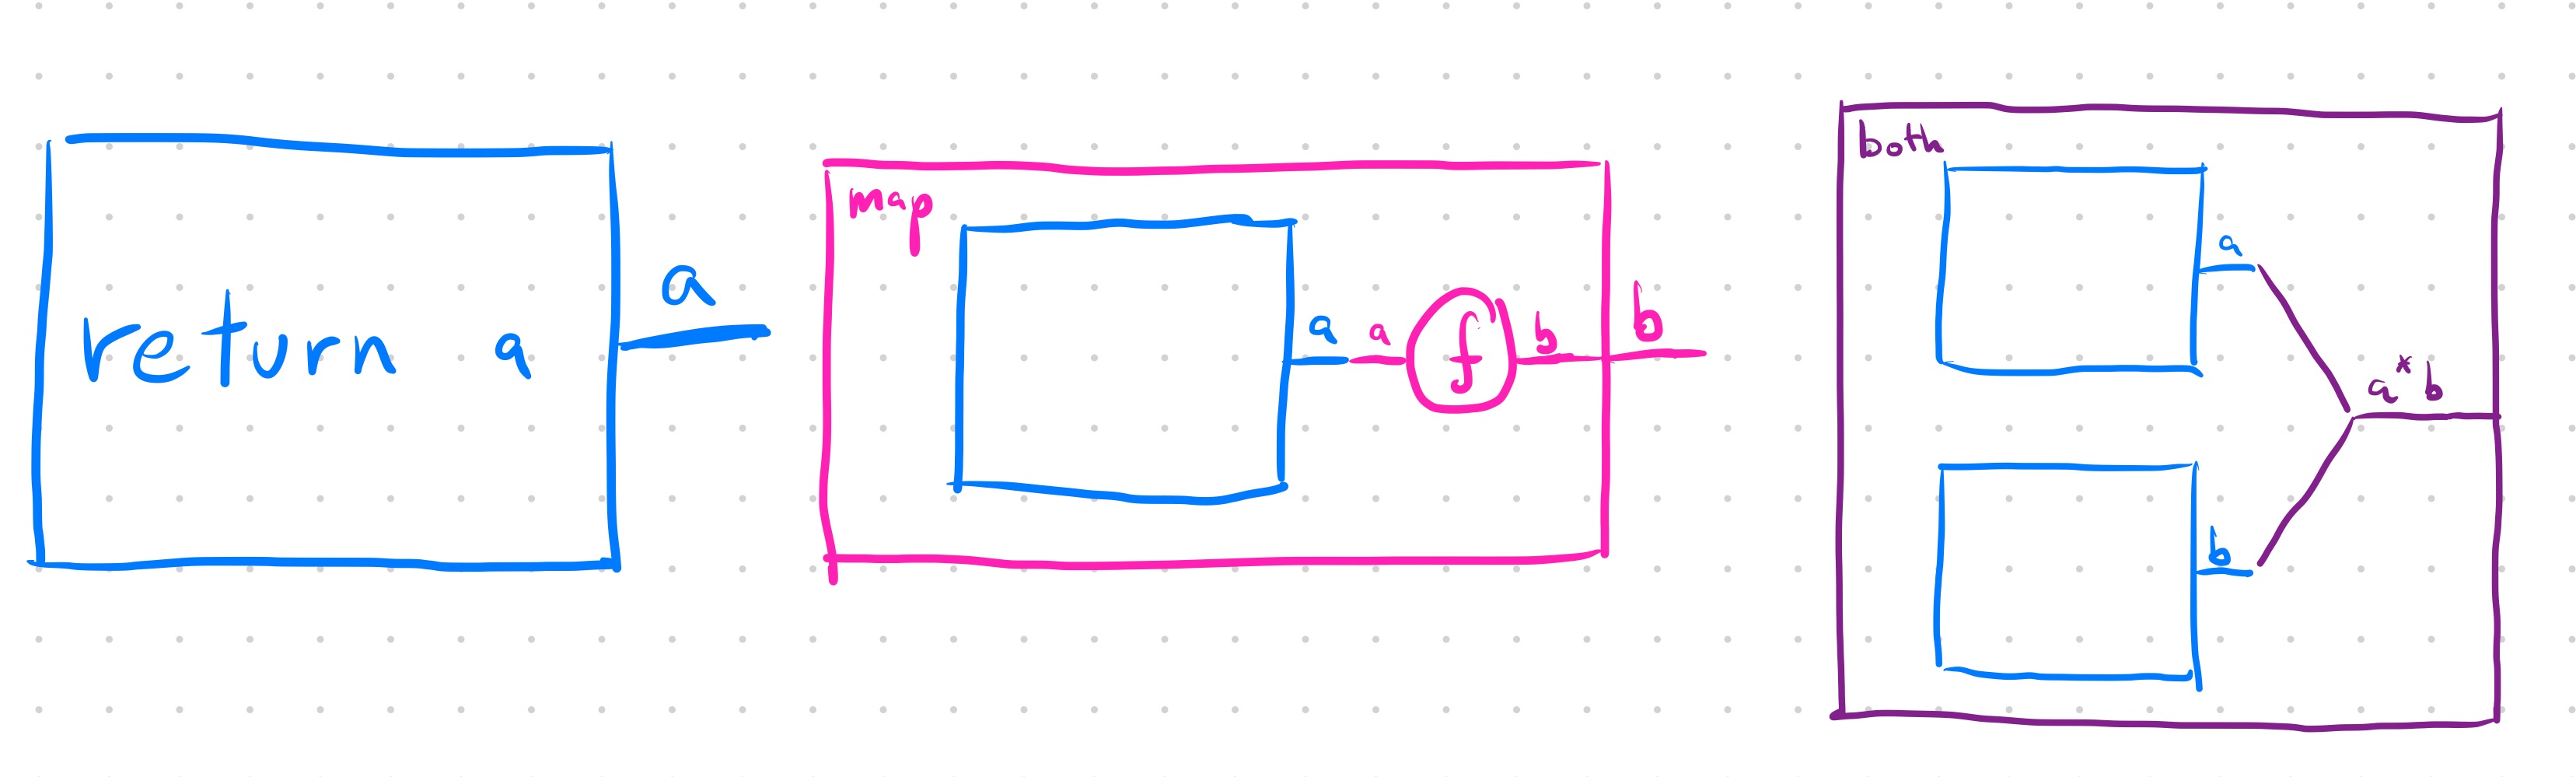 return a
a
map
a
a
f
b
b
both
a
a * b
b